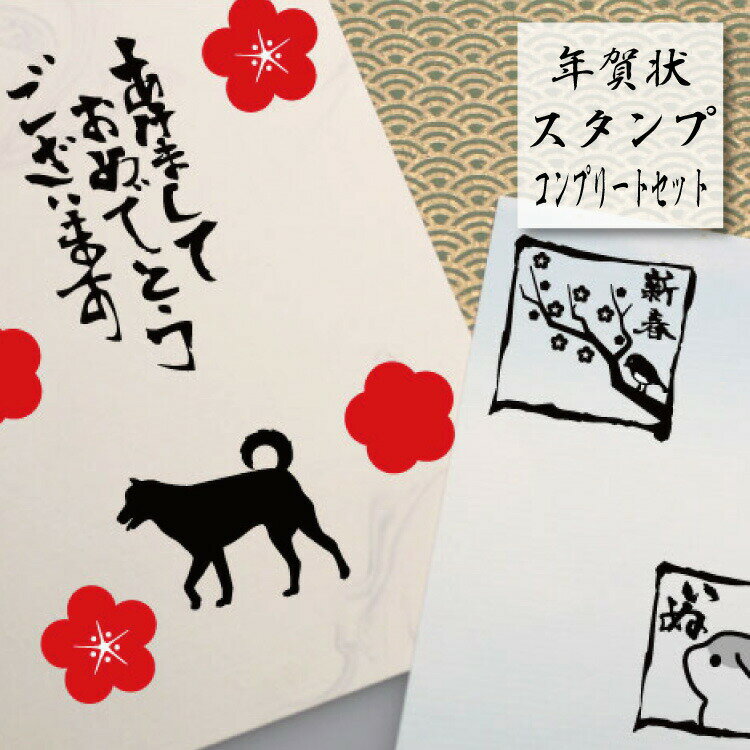 年賀状
スタンプ
コンプリートセット
あけまして
おめでとう
ございます
新春
いぬ